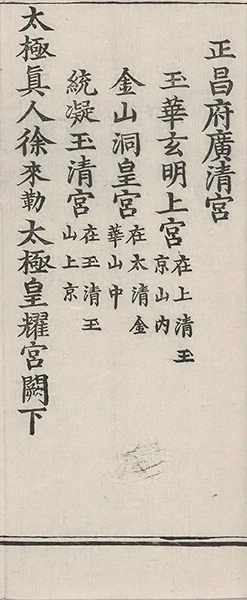 正昌府廣清宮
玉華玄明上宮在上清玉京山内
金山洞皇宮在太清金華山中
統凝玉清宮在玉清玉山上京
太極眞人徐來勒太極皇耀宮闕下